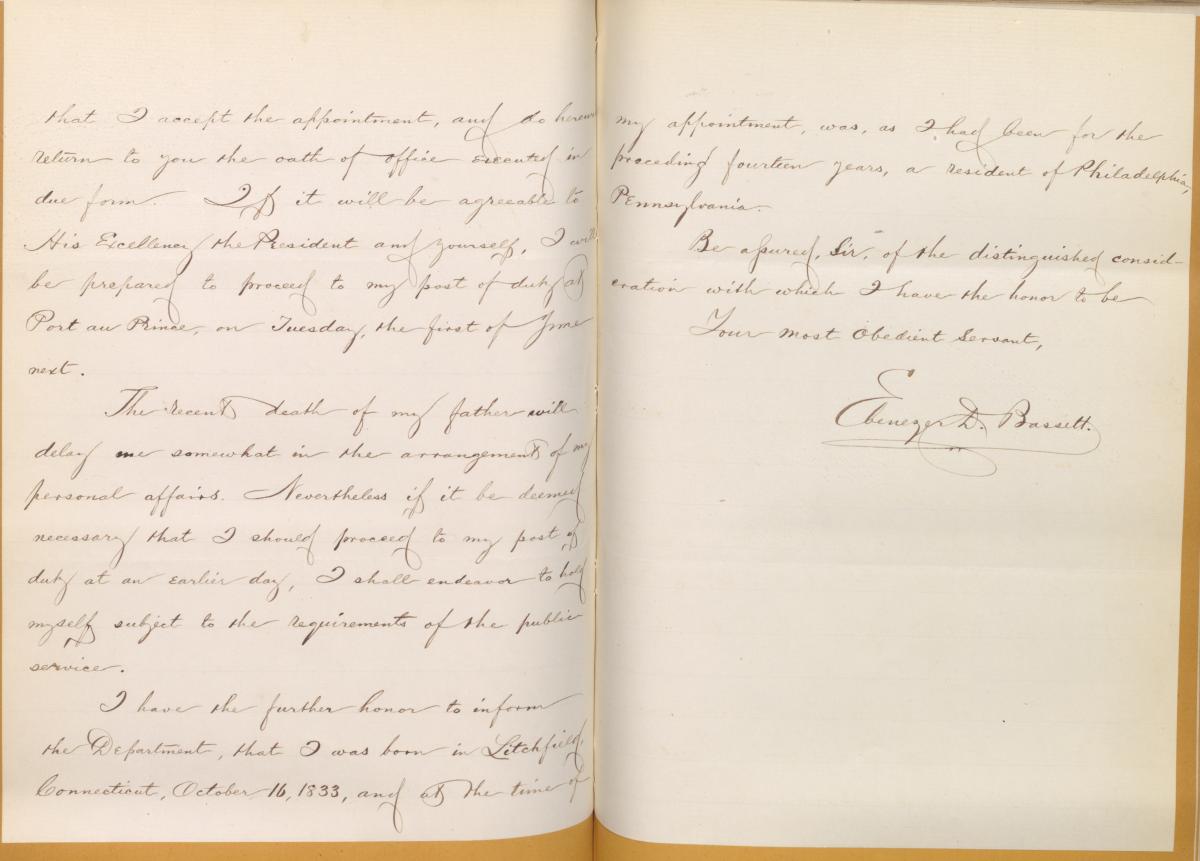 that I accept the appointment, and do herew
return to you the oath of office executed in
due form. If it will be agreeable to
His Excellency the President and yourself, I will
be prepared to proceed to my post of duty at
Port au Prince, on Tuesday, the first of June
next.
The recent death of my father will
delay me somewhat in the arrangement of my
personal affairs. Nevertheless if it be deemed
necessary that I should proceed to my post of
duty at an earlier day, I shall endeavor to hold
myself subject to the requirements of the public
service.
I have the further honor to inform
the Department, that I was born in Litchfield,
Connecticut, October 16, 1833, and at the time of
my appointment, was, as I had been for the
preceding fourteen years, a resident of Philadelphia,
Pennsylvania.
Be assured, Sir, of the distinguished consid-
eration with which I have the honor to be
Your most obedient servant,
Ebenezer D. Bassett.